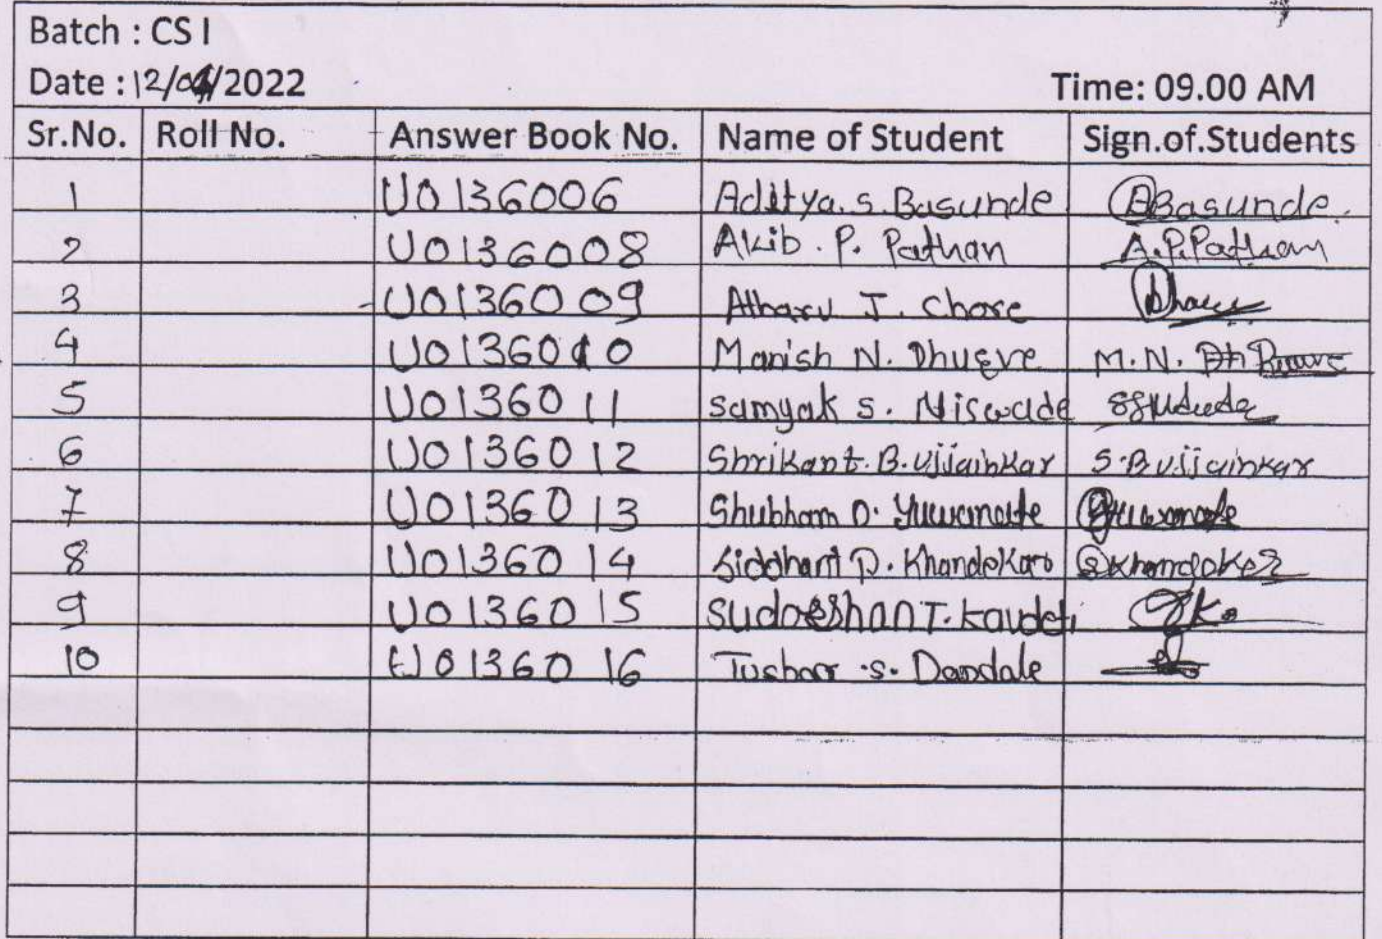 Batch : CS I
Date : 12/04/2022 Time: 09.00 AM
Sr.No. Roll No. Answer Book No. Name of Student Sign.of.Students
1 U0136006 Aditya. S. Basunde ABasunde.
2 U0136008 Akib . P. Pathan A.P.Pathan
3 U0136009 Atharv J. Chore
4 U0136010 Manish N. Dhugve M. N.
5 U0136011 Samyak S. Niswade
6 U0136012 Shrikant. B. Ujjainkar S.B Ujjainkar
7 U0136013 Shubham D. Yuwanate
8 U0136014 Siddhant D. Khandekar SKhandeker
9 U0136015 Sudreshan T.
10 U0136016 Tushar S. Dandale